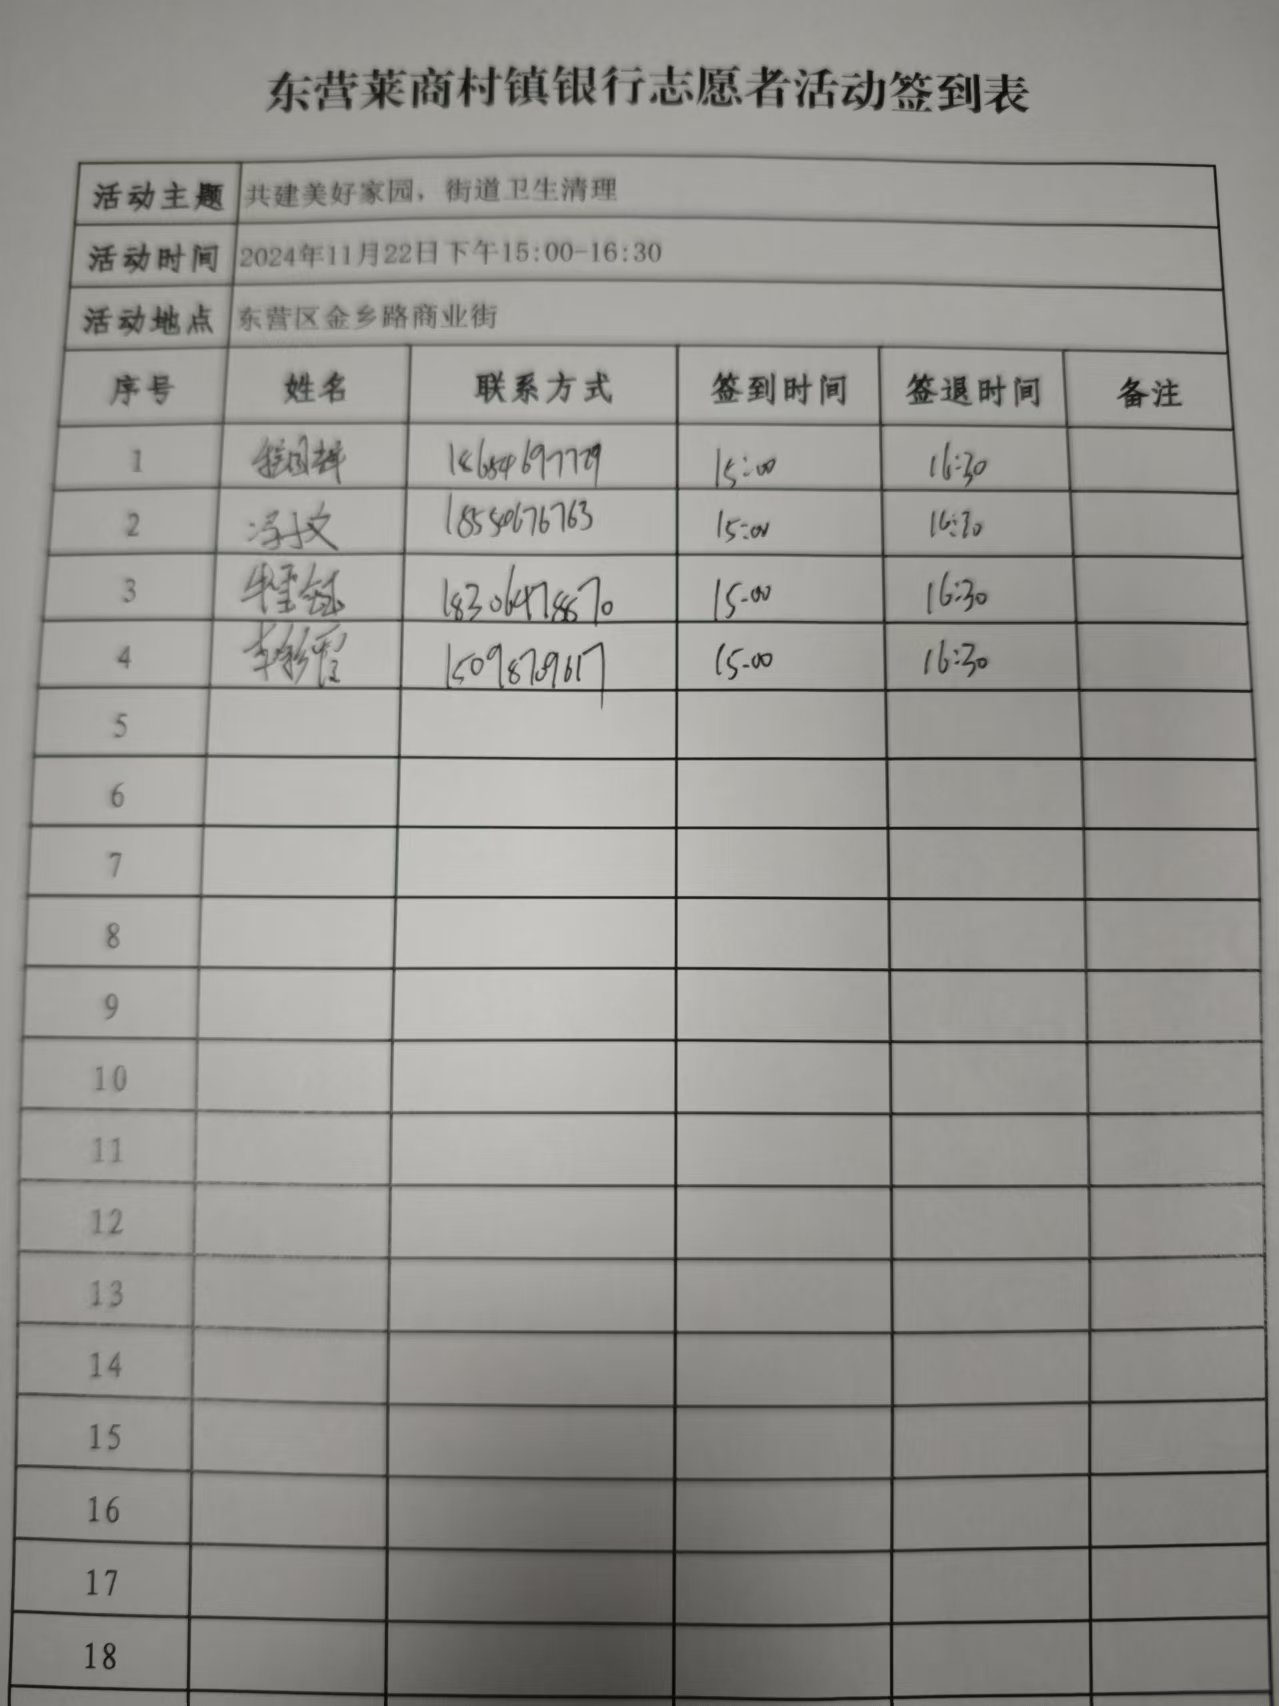 东营莱商村镇银行志愿者活动签到表
活动主题 共建美好家园，街道卫生清理
活动时间 2024年11月22日下午15:00-16:30
活动地点 东营区金乡路商业街
序号 姓名 联系方式 签到时间 签退时间 备注
1 15:00 16:30
2 18550676763 15:00 16:30
3 18306478870 15-00 16:30
4 15098739617 15-00 16:30
5
6
7
8
9
10
11
12
13
14
15
16
17
18